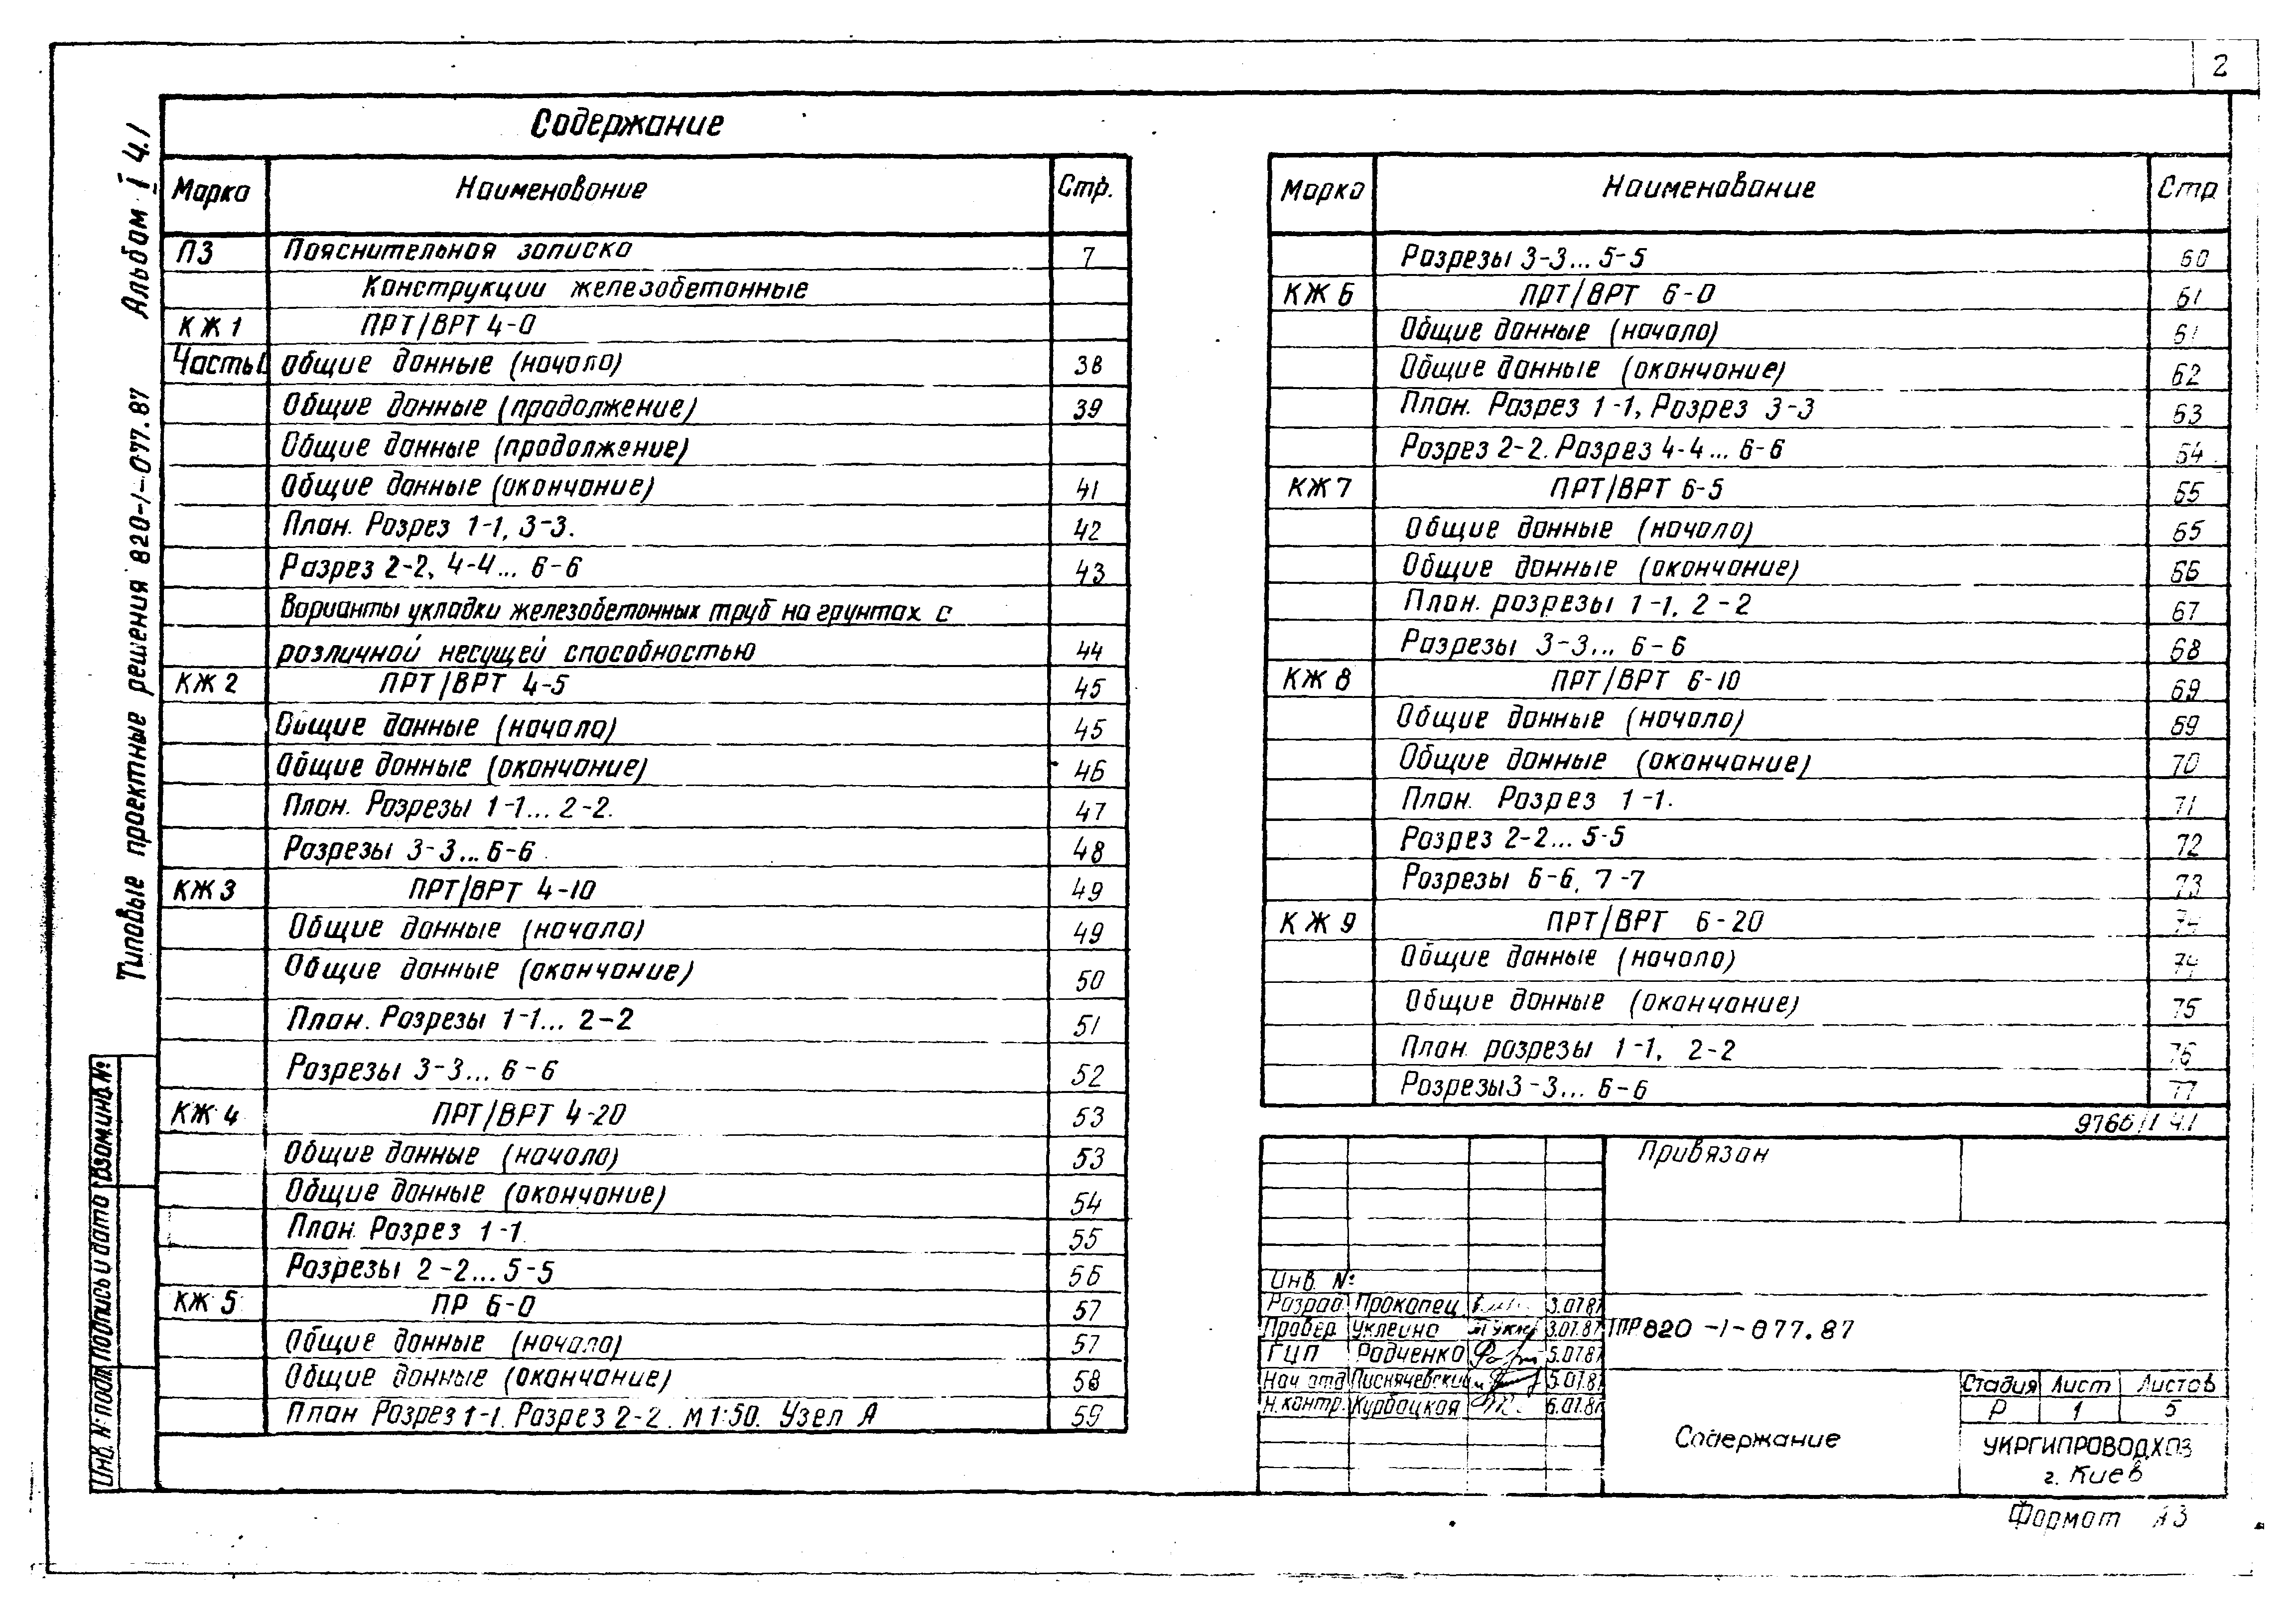 2
Содержание
Марка Наименование Стр.
ПЗ Пояснительная записка 7
Конструкции железобетонные
КЖ 1 ПРТ/ВРТ 4-0
Часть I Общие данные (начало) 38
Общие данные (продолжение) 39
Общие данные (продолжение)
Общие данные (окончание) 41
План. Разрез 1-1, 3-3. 42
Разрез 2-2, 4-4... 6-6 43
Варианты укладки железобетонных труб на грунтах с
различной несущей способностью 44
КЖ 2 ПРТ/ВРТ 4-5 45
Общие данные (начало) 45
Общие данные (окончание) 46
План. Разрезы 1-1... 2-2. 47
Разрезы 3-3... 6-6 48
КЖ 3 ПРТ/ВРТ 4-10 49
Общие данные (начало) 49
Общие данные (окончание) 50
План. Разрезы 1-1... 2-2 51
Разрезы 3-3... 6-6 52
КЖ 4 ПРТ/ВРТ 4-20 53
Общие данные (начало) 53
Общие данные (окончание) 54
План. Разрез 1-1 55
Разрезы 2-2... 5-5 56
КЖ 5 ПР 6-0 57
Общие данные (начало) 57
Общие данные (окончание) 58
План Разрез 1-1. Разрез 2-2. М 1:50. Узел А 59
Марка Наименование Стр
Разрезы 3-3... 5-5 60
КЖ 6 ПРТ/ВРТ 6-0 61
Общие данные (начало) 61
Общие данные (окончание) 62
План. Разрез 1-1, Разрез 3-3 63
Разрез 2-2. Разрез 4-4... 6-6 64
КЖ 7 ПРТ/ВРТ 6-5 65
Общие данные (начало) 65
Общие данные (окончание) 66
План. разрезы 1-1, 2-2 67
Разрезы 3-3... 6-6 68
КЖ 8 ПРТ/ВРТ 6-10 69
Общие данные (начало) 69
Общие данные (окончание) 70
План. Разрез 1-1. 71
Разрез 2-2... 5-5 72
Разрезы 6-6, 7-7 73
КЖ 9 ПРТ/ВРТ 6-20 74
Общие данные (начало) 74
Общие данные (окончание) 75
План. разрезы 1-1, 2-2 76
Разрезы 3-3... 6-6 77
9766/1 ч.1
Привязан
Инв. №:
Разраб. Прокопец 3.07.87
Провер. Уклеино 3.07.87
ГИП Радченко 5.07.87
Нач отд Писнячевский 5.07.87
Н. контр. Курбацкая 6.07.87
ТПР 820-1-077.87
Содержание
Стадия Лист Листов
Р 1 5
УКРГИПРОВОДХОЗ
г. Киев
Формат А3
Типовые проектные решения 820-1-077.87 Альбом I ч.1
Инв. № подл. Подпись и дата Взам.инв.№